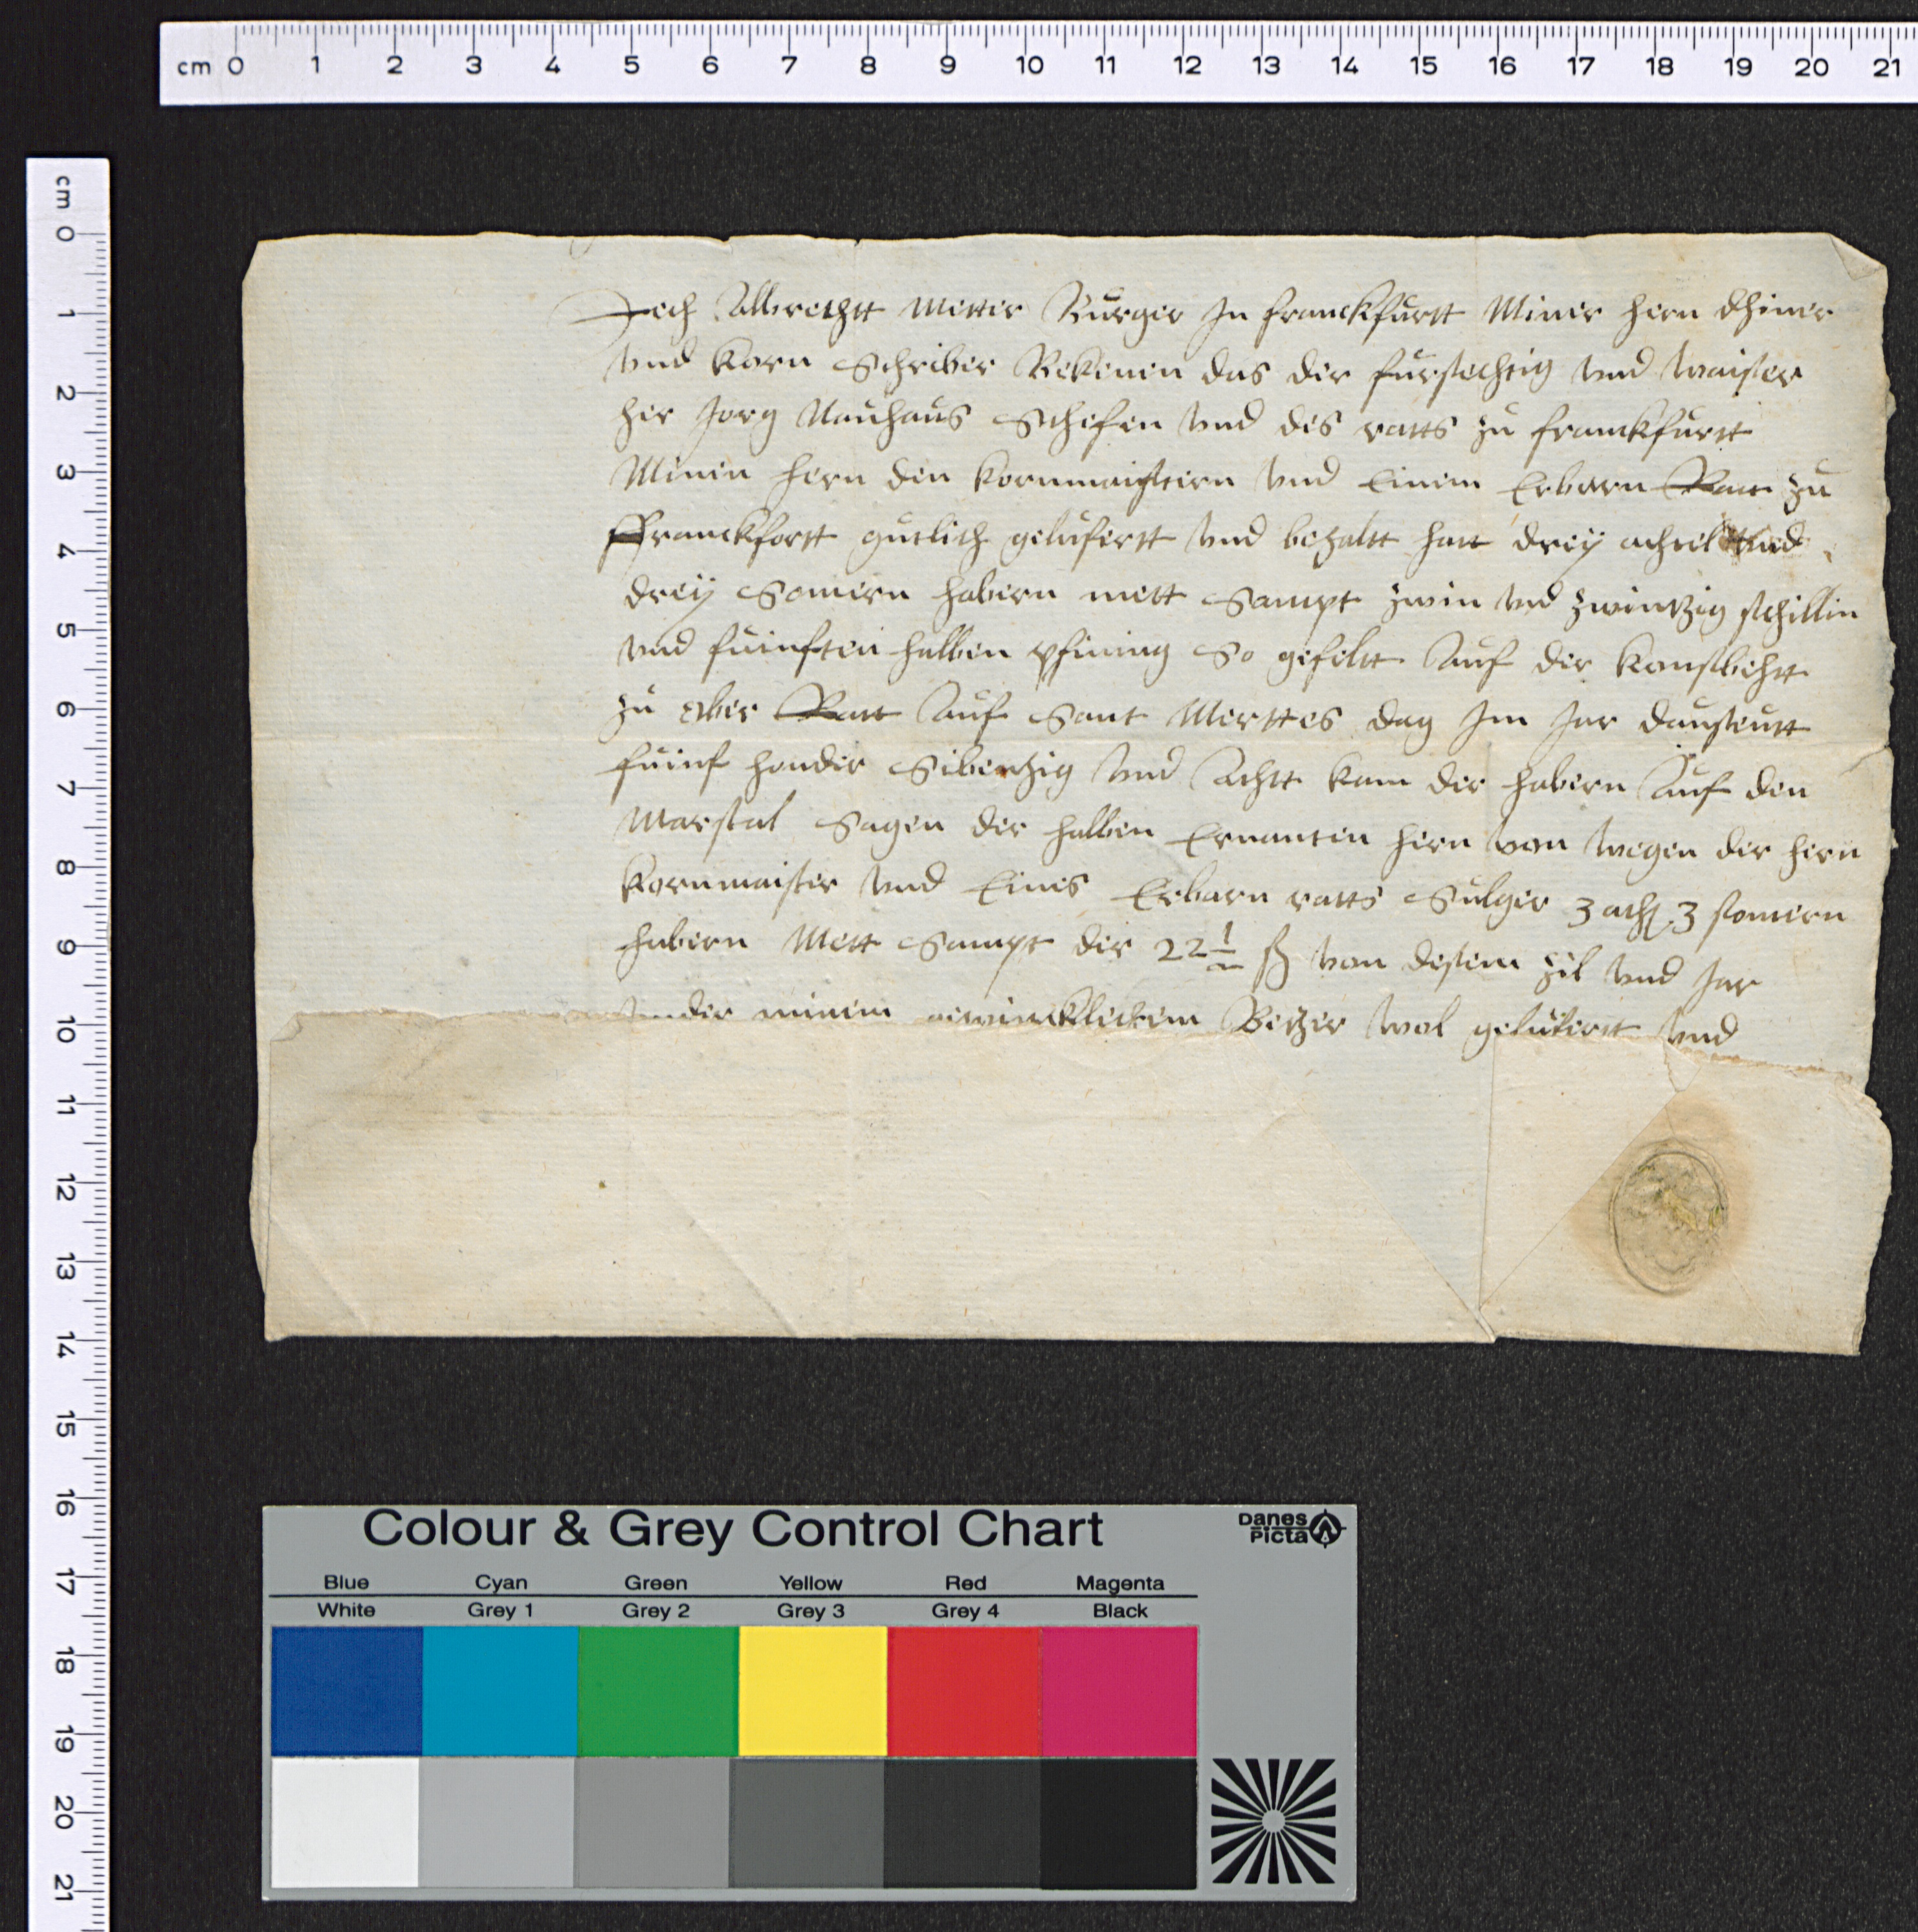 cm 0 1 2 3 4 5 6 7 8 9 10 11 12 13 14 15 16 17 18 19 20 21
cm 0 1 2 3 4 5 6 7 8 9 10 11 12 13 14 15 16 17 18 19 20 21
Jech Albrechtt Meier Burger Jn franckfurtt Miner hern dhiner
vnd korn Schriber Bekenen das der fursechtig vnd waiser
her Jorg Nauhaus Schefen vnd des ratts zu franckfurtt
Minen hern den kornmaistern vnd Einem Erbarn Ratt zu
Franckfortt gutlich gelufertt vnd bezaltt hatt dreÿ achtel vnd
dreÿ Somern habern mett Sampt zwin vnd zwintzig schillin
vnd fuinften halben pfining So gefeltt Auf der
zu Ober Ratt Auf Sant Merttes dag Jm Jar dausentt
fuinf honder Sibenzig vnd Achtt kam der habern Auf den
Marstal Sagen der halben Ernanten hern von wegen der hern
kornmaister vnd Eines Erbarn ratts Sulger 3 acht 3 somern
habern Mett Sampt der 22 1/2 ß von desem zil vnd Jar
vnder minem Betzer wol gelufertt vnd
Colour & Grey Control Chart
Danes Picta
Blue Cyan Green Yellow Red Magenta
White Grey 1 Grey 2 Grey 3 Grey 4 Black